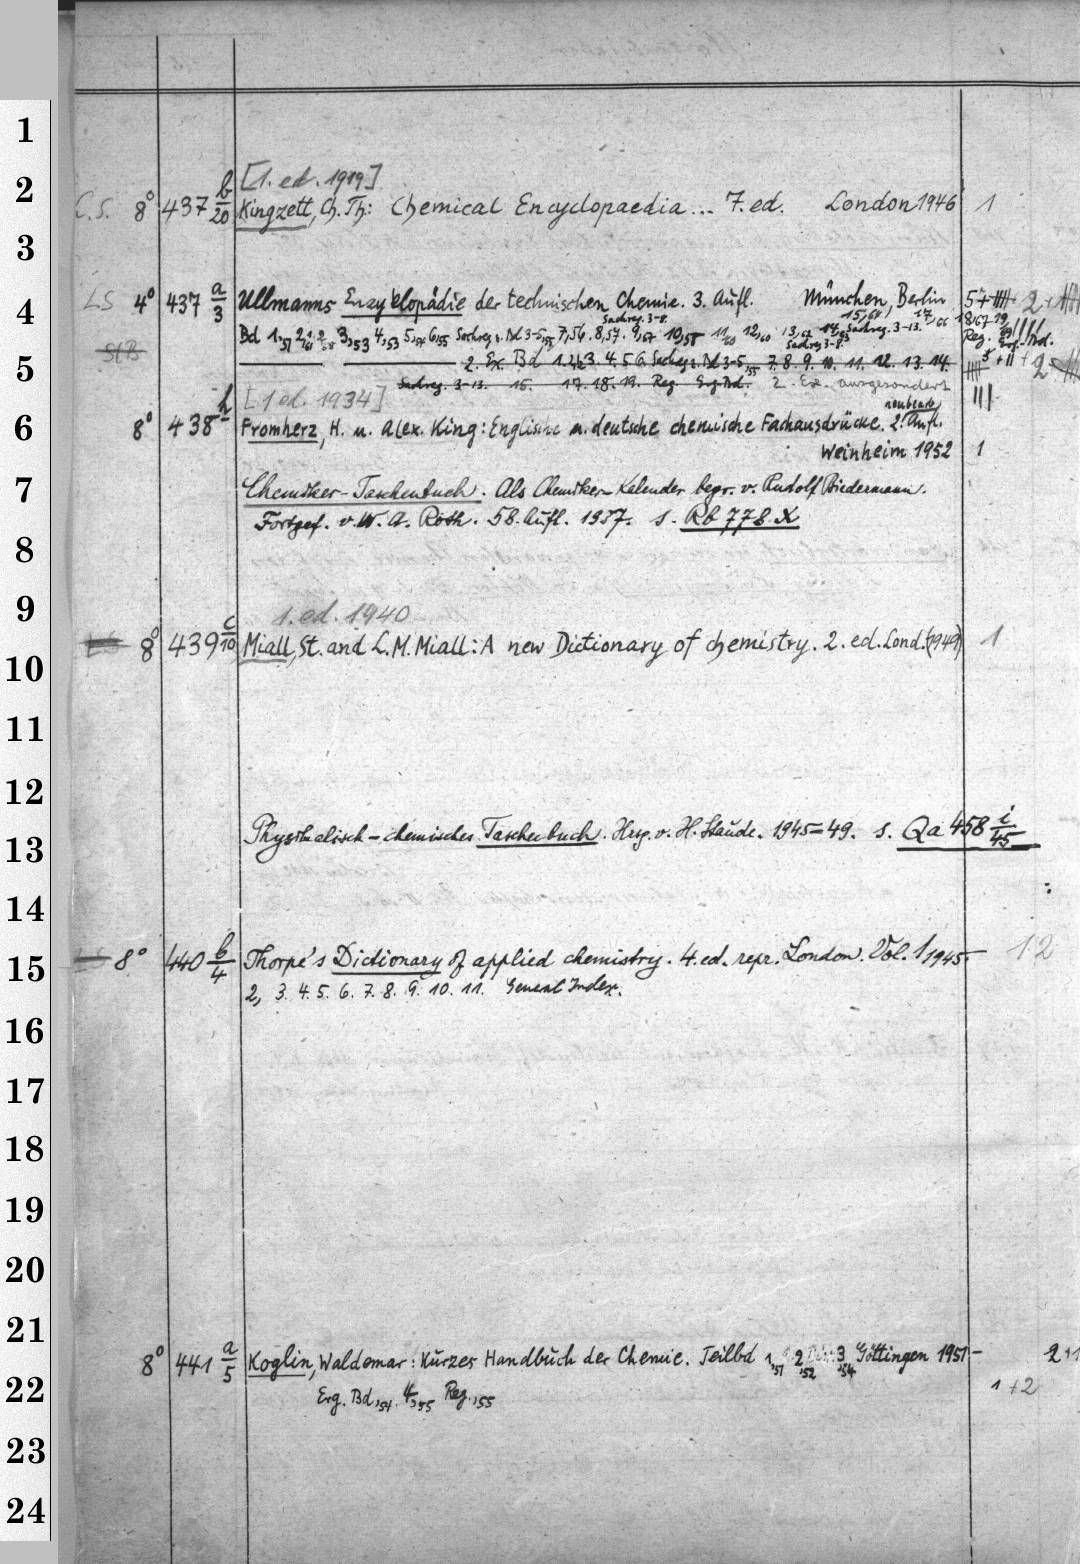 1
2
3
4
5
6
7
8
9
10
11
12
13
14
15
16
17
18
19
20
21
22
23
24
[1. ed. 1919]
C.S. 8° 437 b/20 Kingzett, Ch. Th: Chemical Encyclopaedia... 7. ed. London 1946 1
LS 4° 437 a/3 Ullmanns Enzyklopädie der technischen Chemie. 3. Aufl. München, Berlin
StB
2. Ex. Bd 1. 2. 3. 4. 5. 6. Sachreg. z. Bd 3-5,55 7. 8. 9. 10. 11. 12. 13. 14.
Sachreg. 3-13. 15. 17. 18. 19. Reg. Erg. Bd. 2. Ex. ausgesondert
[1. ed. 1934]
8° 438 h Fromherz, H. u. Alex. King: Englische u. deutsche chemische Fachausdrücke. 2. neubearb. Aufl.
Weinheim 1952 1
Chemiker-Taschenbuch. Als Chemiker-Kalender begr. v. Rudolf Biedermann.
Fortgef. v. W. A. Roth. 58. Aufl. 1937. s. Rb 778 X
1. ed. 1940
8° 439 c/10 Miall, St. and L. M. Miall: A new Dictionary of chemistry. 2. ed. Lond. (1949) 1
Physikalisch-chemisches Taschenbuch. Hrsg. v. H. Staude. 1945=49. s. Qa 458 i/45
8° 440 b/4 Thorpe's Dictionary of applied chemistry. 4. ed. repr. London. Vol. 1,1945- 12
2, 3. 4. 5. 6. 7. 8. 9. 10. 11. General Index.
8° 441 a/5 Koglin, Waldemar: Kurzes Handbuch der Chemie. Teilbd 1,51 2,52 3,54 Göttingen 1951- 2+1
Erg. Bd,54. 4,55 Reg.,55 1+2